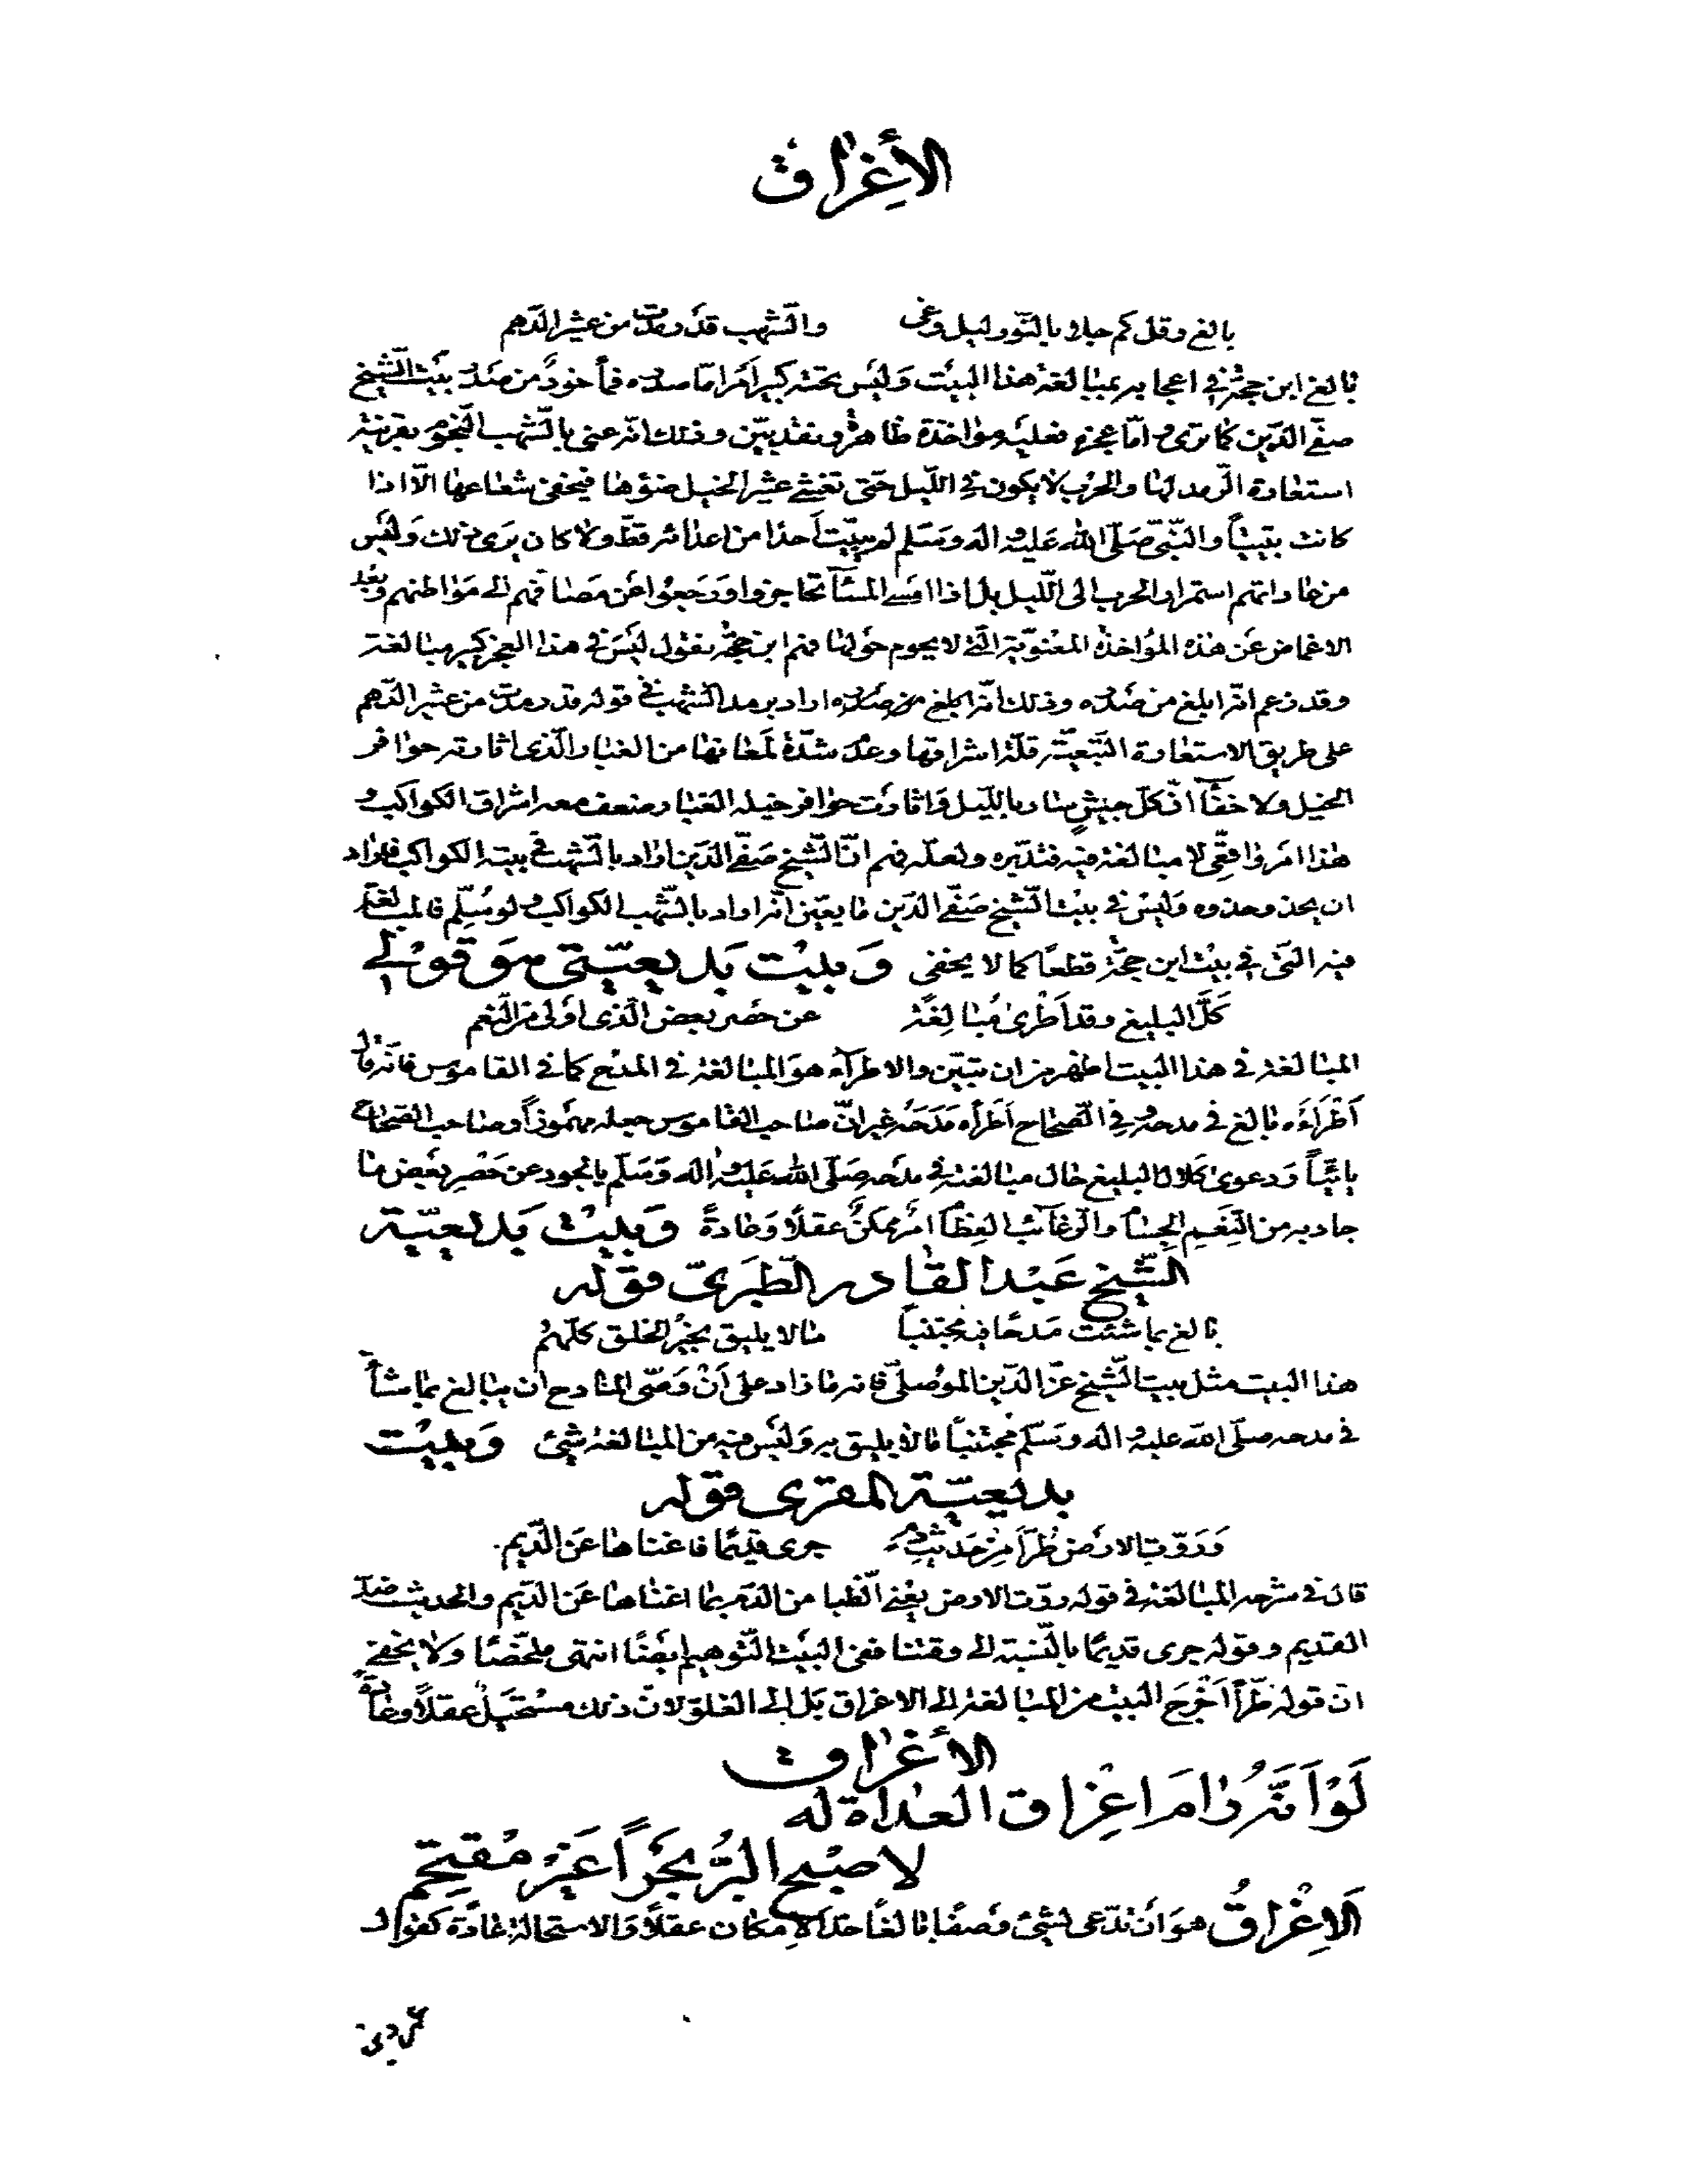 الأغراق
بالغ وقل كم جلا بالنّور ليل وغى والشّهب قد رمدت من عثير الدّهم
بالغ ابن حجّة في اعجابه بمبالغة هذا البيت وليس تحته كبير امر امّا صدره فمأخوذ من صدر بيت الشّيخ
صفّى الدّين كما ترى وامّا عجزه فعليه مؤاخذة ظاهرة ونقد بيّن وذلك انّه عنى بالشّهب النّجوم بقرينة
استعارة الرّمد لها والحرب لا يكون في اللّيل حتى تغشى عثير الخيل ضوؤها فيخفى شعاعها الّا اذا
كانت بتيتاً والنّبىّ صَلّى الله عَليْه واله وسَلّم لم يبيّت أحدا من اعدائه قطّ ولا كان يرى ذلك وليس
من عاداتهم استمرار الحرب الى اللّيل بل اذا امسى المسآء تحاجزوا ورَجعوا عن مصافّهم الى مَواطنهم وبَعْد
الاغماض عَن هذه المؤاخذة المعنويّة الّتي لا يحوم حَولها فهم ابن حجّة نقول ليسَ في هذا العجز كبير مبالغة
وقد زعم انّه ابلغ من صَدره وذلك انّه اراد برمد الشّهب في قوله قد رمدت من عثير الدّهم
على طريق الاستعارة التّبعيّة قلّة اشراقها وعدَم شدّة لمَعانها من الغبار الّذى اثارته حوافر
الخيل ولا خفآء انّ كلّ جيشٍ سار بالليل وَاثارت حوافر خيله الغبار ضعف معه اشراق الكواكب و
هذا امر واقعّى لا مبالغة فيه فتدبّره ولعلّه فهم انّ الشّيخ صَفّى الدّين اراد بالشّهب في بيته الكواكب فاراد
ان يحذو حذوه وَليسْ في بيْت الشّيخ صَفّى الدّين ما يعيّن انّه اراد بالشّهب الكواكب ولو سُلّم فالمبالغة
فيه الّتى في بيْت ابن حجّة قطعاً كما لا يخفى وَبيْت بَديعيّتى هوَ قوْلى
كَلَّ البليغ وقد اَطْرىٰ مُبالِغَة عن حَصر بعض الّذى اَولى من النّعم
المبالغة في هذا البيت اظهر من ان تبيّن والاطرآء هوَ المبالغة في المدْح كما في القاموس فانّه قال
أَطْرَأَه بالغ في مدحه وفي الصّحاح اَطْرأه مَدَحَه غير انّ صاحب القاموس جعله مهموزاً وصاحب الصّحاح
يائيّاً وَدعوىٰ كَلال البليغ حال مبالغته في مدْحه صَلّى الله عَليْه واله وَسَلّم بالجود عن حَصْرِ بعْض ما
جاد به من النّعَم الجسام والرّغآئب العظام امْر ممكنٌ عقلًا وَعادةً وَبيْت بَديعيّة
الشّيْخ عَبْد القادر الطّبَرىّ قوله
بالغ بما شئت مَدحًا فيه مجتنباً ما لا يليق بخيْر الخلق كلّهمُ
هذا البيت مثل بيت الشّيخ عزّ الدّين الموْصلىّ فانّه ما زاد على اَنْ وَصّى المادح ان يبالغ بما شآء
في مدحه صلّى الله عليْه واله وسَلّم مجتنباً ما لا يليق به وَليْس فيه من المبالغة شيْئ وَبيْت
بديعيّة المقرى قوله
وَرَوّت الارض طُرّاً مِنْ حَديْثِ دمٍ جرى قديمًا فاغناها عَن الدّيم
قال في شرحه المبالغة في قوله روّت الارض يعْنى الظبا من الدّم بما اغناها عَن الدّيم والحديث ضدّ
القديم وقوله جرى قديمًا بالنّسبة الى وقتنا ففى البيْت التّوهيم ايضًا انتهى ملخّصًا وَلا يخفى
انّ قوله طُرّاً أخْرجَ البيت من المبالغة الى الاغراق بَل الى الغلوّ لانّ ذلك مستحيل عقلاً وعادَة
الأغراق
لَوْ اَنّهُ رٰامَ اِغْراق العداة له
لاصْبح البرّ بَحْراً غَيْر مُقتحَم
اَلاِغْراقُ هوَ اَن تدّعى لشيئ وصفًا بالغًا حدّ الاِمكان عقلاً وَالاستحالة عادةً كقوله